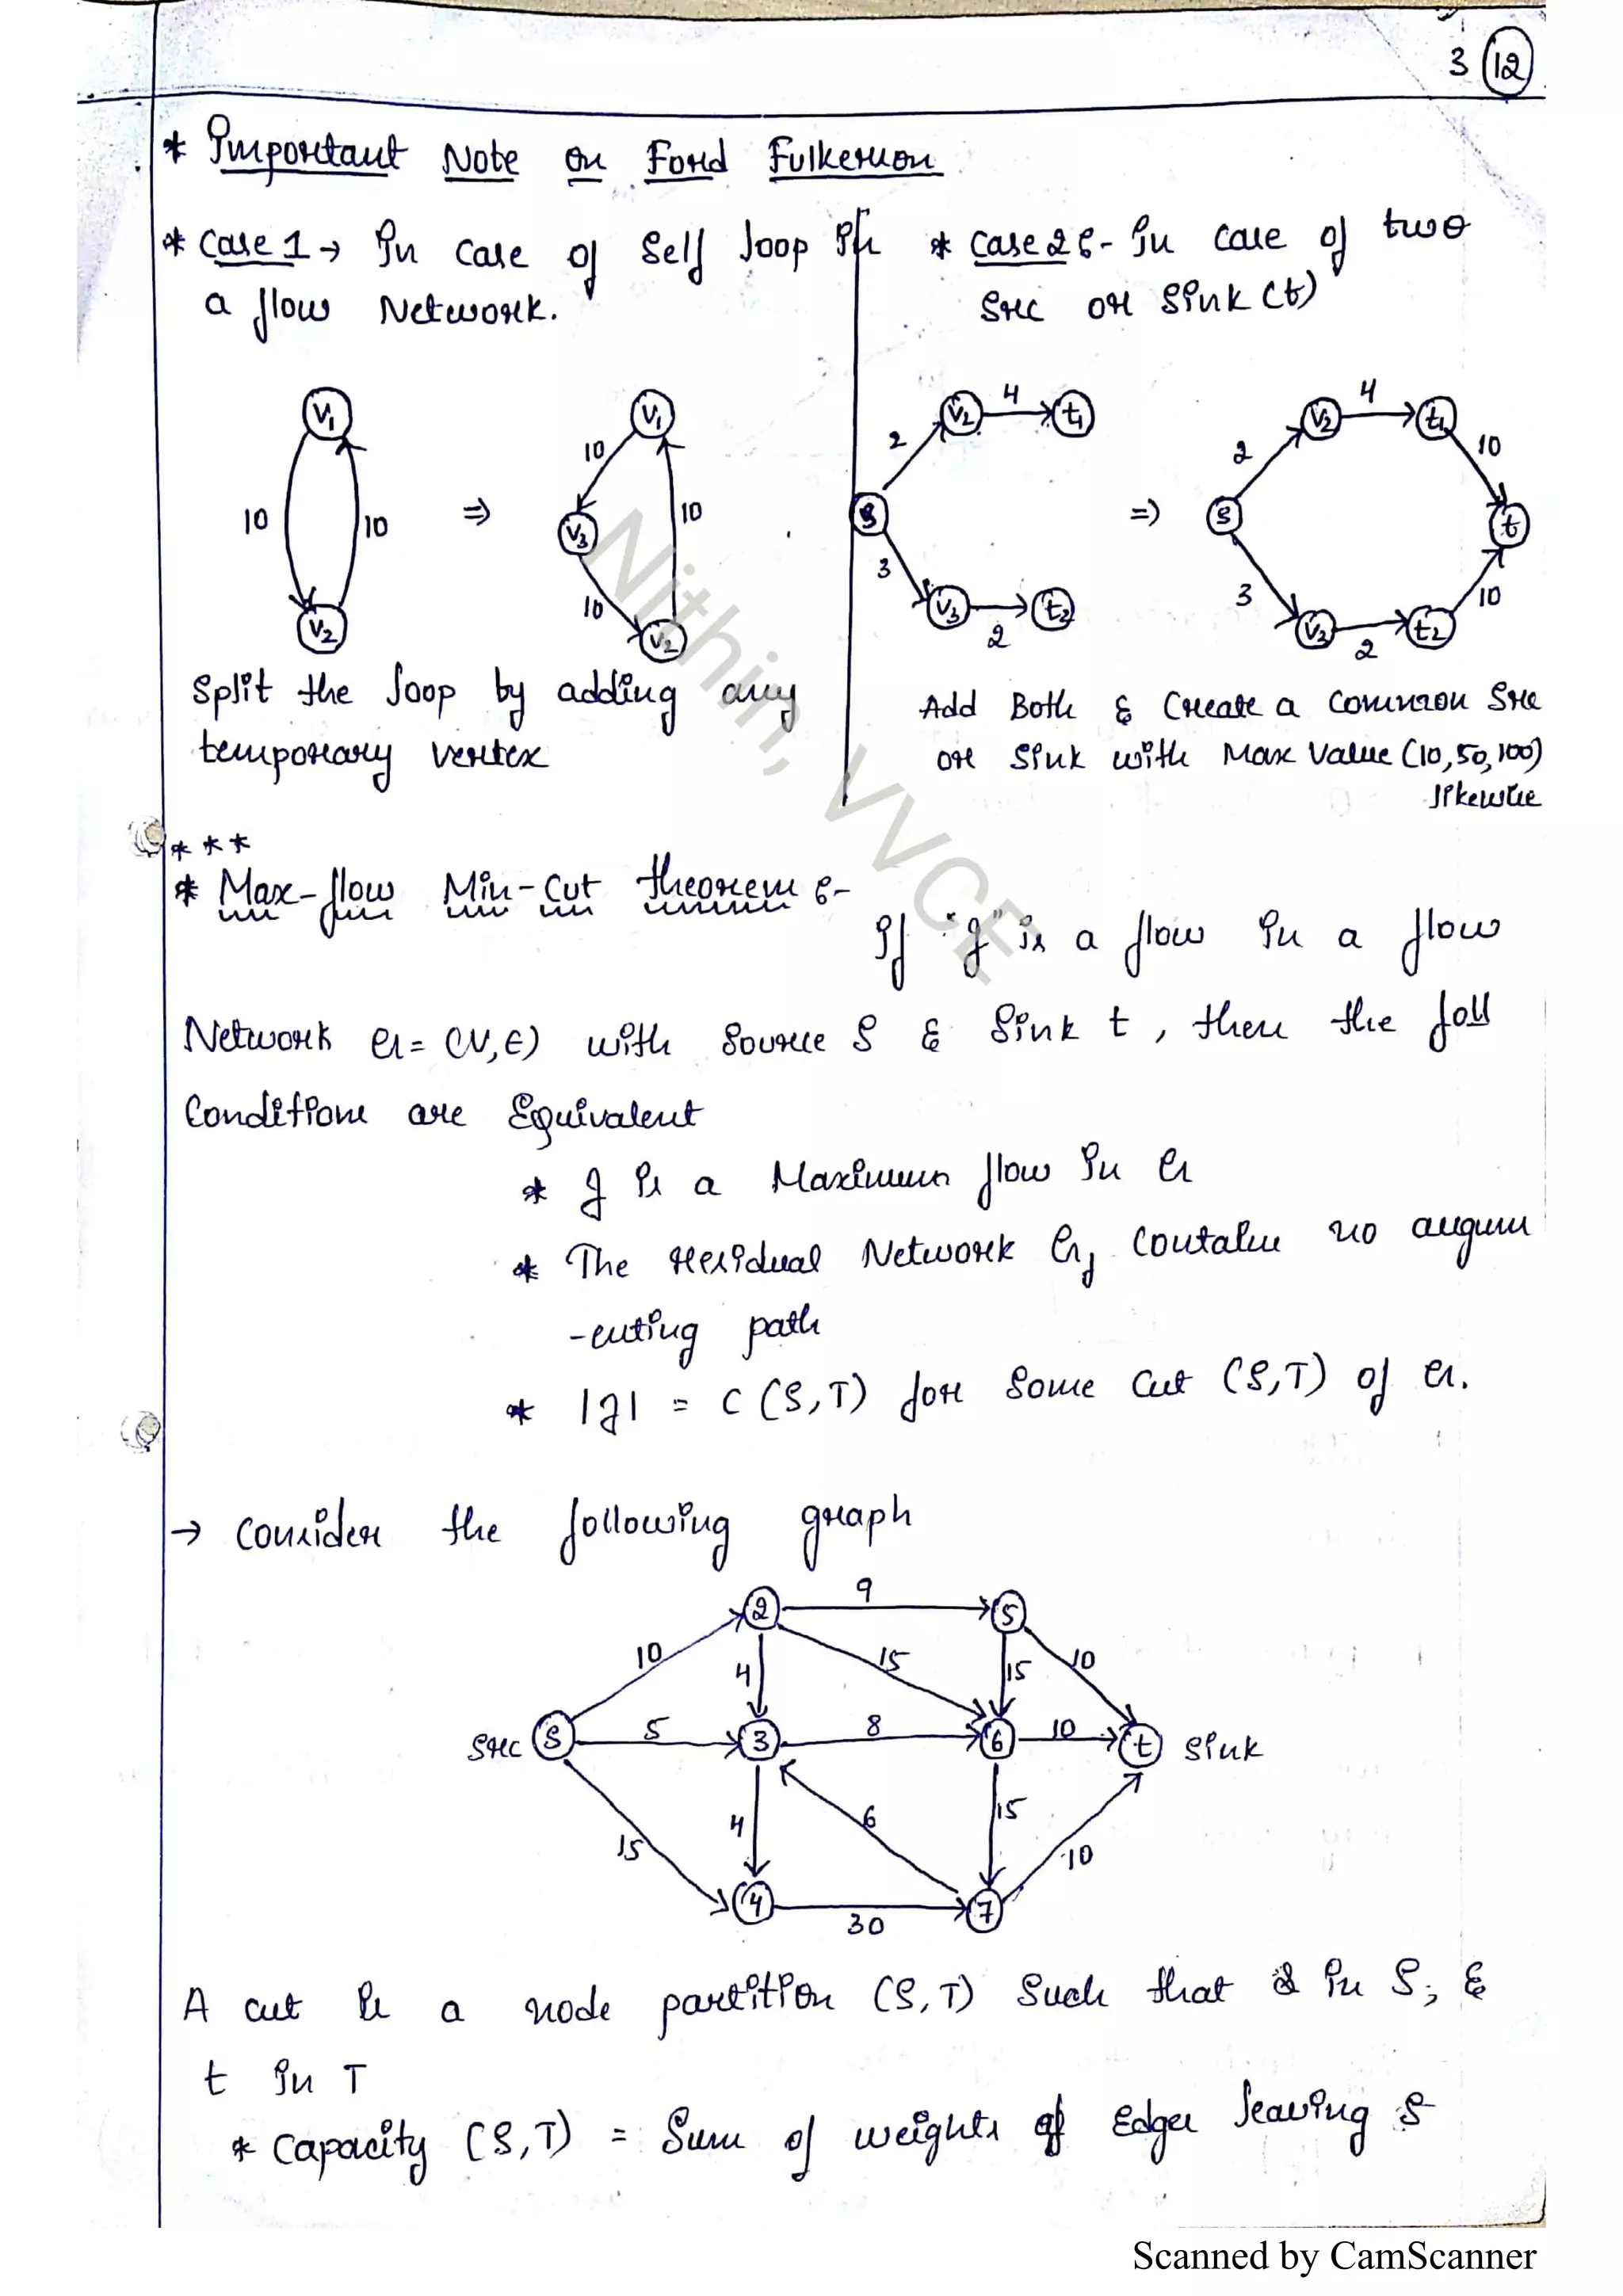 3 12
* Important Note on Ford Fulkerson
* Case 1 → In case of Self loop in
a flow Network.
V1
10
10
V2
⇒
V1
10
V3
10
10
V2
Split the loop by adding any
temporary vertex
* Case 2 :- In case of two
Src or Sink (t)
V2
4
t1
2
S
3
V3
2
t2
⇒
V2
4
t1
2
10
S
t
3
10
V3
2
t2
Add Both & Create a common Src
or Sink with Max Value (10, 50, 100)
likewise
* * *
* Max-flow Min-Cut theorem :-
If "f" is a flow in a flow
Network G = (V, E) with Source S & Sink t, then the foll
Conditions are Equivalent
* f is a Maximum flow in G
* The residual Network Gf contains no augm
-enting path
* |f| = C (S, T) for Some Cut (S, T) of G.
→ Consider the following graph
2
9
5
10
4
15
15
10
Src
S
5
3
8
6
10
t
Sink
15
4
6
15
10
4
30
7
A cut is a node partition (S, T) Such that s in S, &
t in T
* Capacity (S, T) = Sum of weights of Edges leaving S
Nithin, VVCE
Scanned by CamScanner